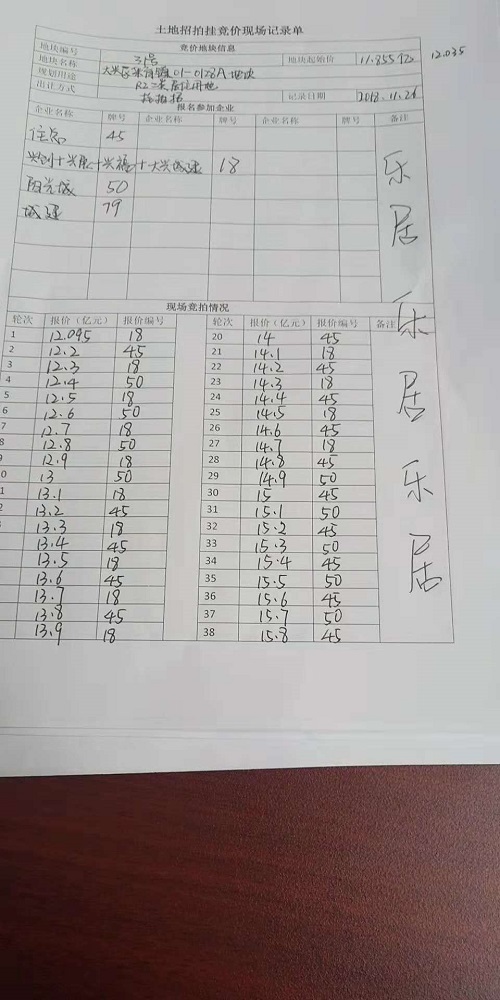 土地招拍挂竞价现场记录单
竞价地块信息
地块编号 31号 地块起始价 11.855亿 12.035
地块名称 大兴区 01-0128A地块
规划用途 R2二类居住用地
出让方式 记录日期 2018.11.26
报名参加企业
企业名称 牌号 企业名称 牌号 企业名称 牌号 备注
住总 45
兴创+兴展+兴福+大兴城建 18
阳光城 50
城建 79
乐居 乐居 乐居
现场竞拍情况
轮次 报价（亿元） 报价编号 轮次 报价（亿元） 报价编号 备注
1 12.095 18 20 14 45
2 12.2 45 21 14.1 18
3 12.3 18 22 14.2 45
4 12.4 50 23 14.3 18
5 12.5 18 24 14.4 45
6 12.6 50 25 14.5 18
7 12.7 18 26 14.6 45
8 12.8 50 27 14.7 18
9 12.9 18 28 14.8 45
0 13 50 29 14.9 50
1 13.1 18 30 15 45
2 13.2 45 31 15.1 50
13.3 18 32 15.2 45
13.4 45 33 15.3 50
13.5 18 34 15.4 45
13.6 45 35 15.5 50
13.7 18 36 15.6 45
13.8 45 37 15.7 50
13.9 18 38 15.8 45